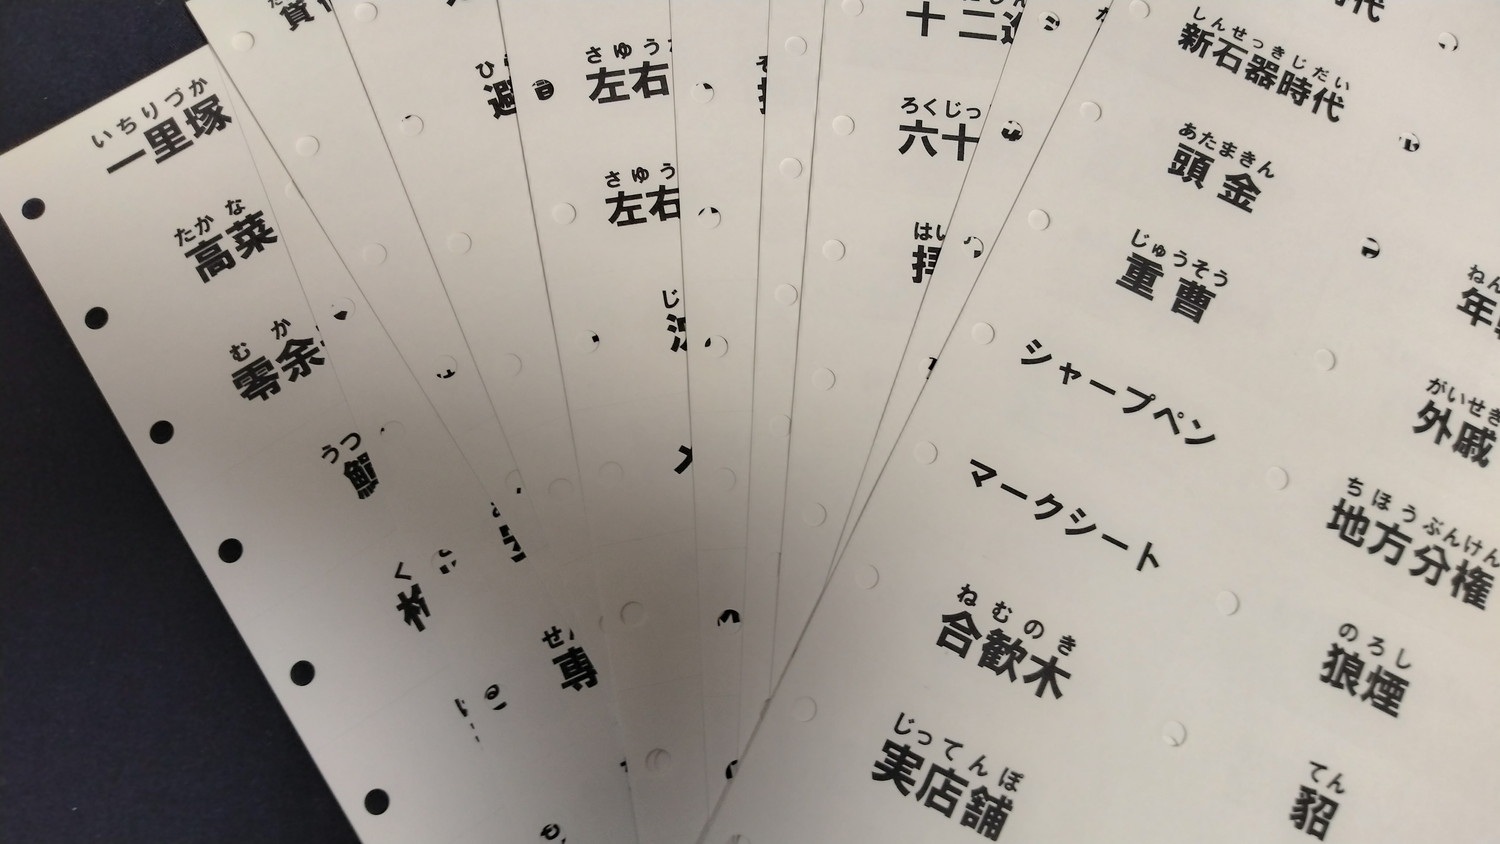 いちりづか
一里塚
たかな
高菜
むか
零余
うつ
鱓
く
せ
専
さゆう
左右
さゆう
左右
じ
十二進
ろくじっ
六十
はい
拝
しんせっきじだい
新石器時代
あたまきん
頭金
じゅうそう
重曹
シャープペン
マークシート
ねむのき
合歓木
じってんぽ
実店舗
ねん
年
がいせき
外戚
ちほうぶんけん
地方分権
のろし
狼煙
てん
貂